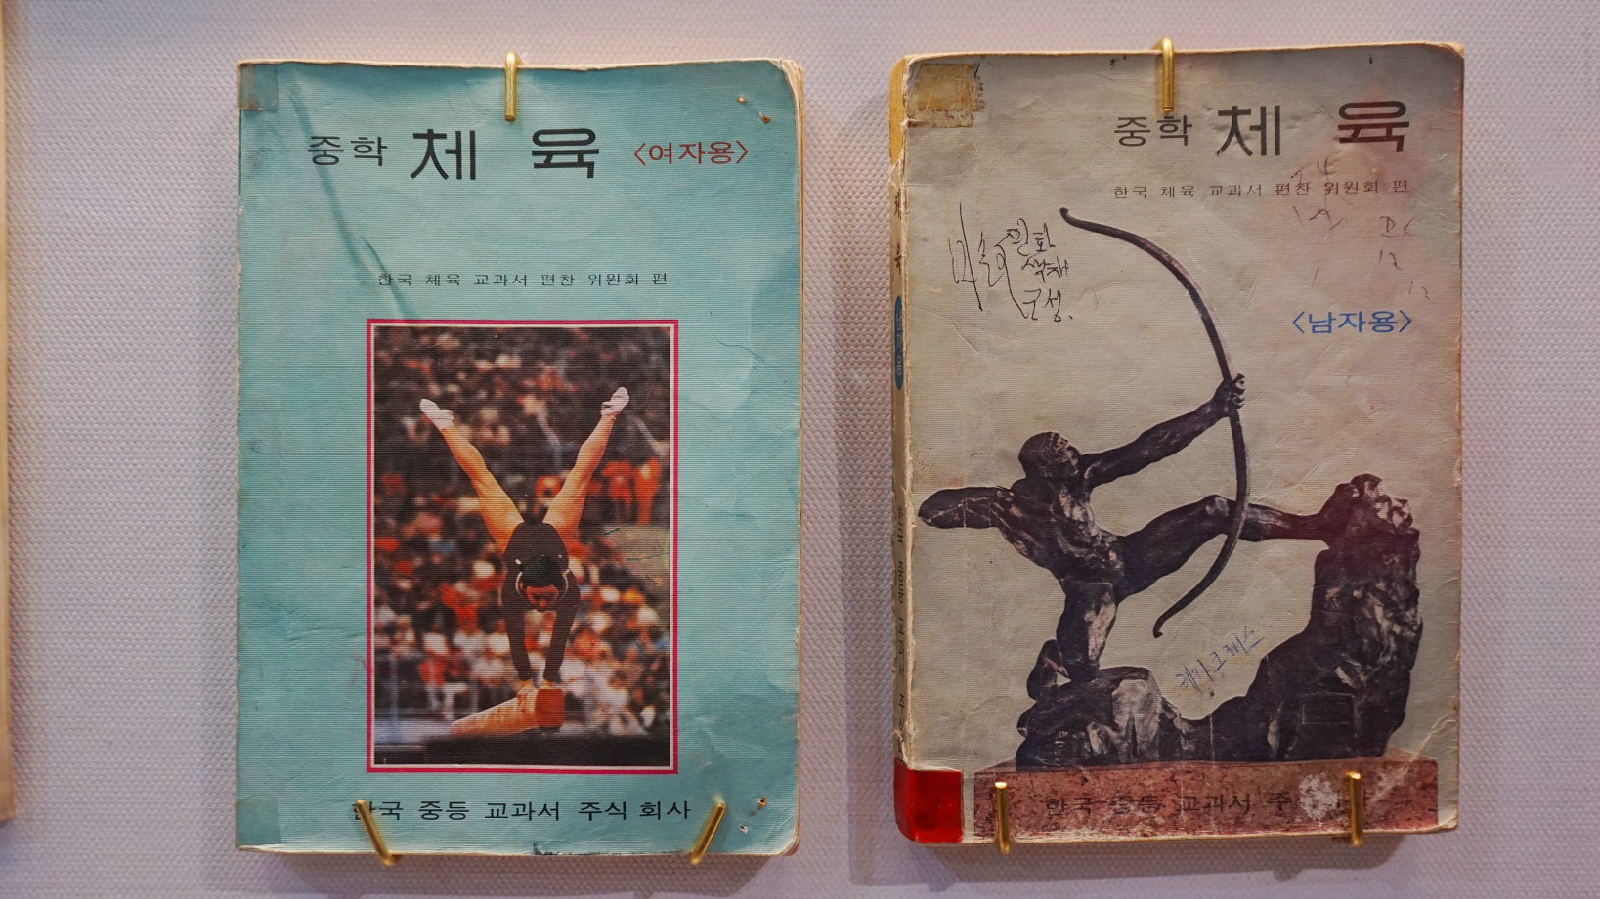 중학 체 육 〈여자용〉
한국 체육 교과서 편찬 위원회 편
한국 중등 교과서 주식 회사
중학 체 육
한국 체육 교과서 편찬 위원회 편
〈남자용〉
한국 중등 교과서